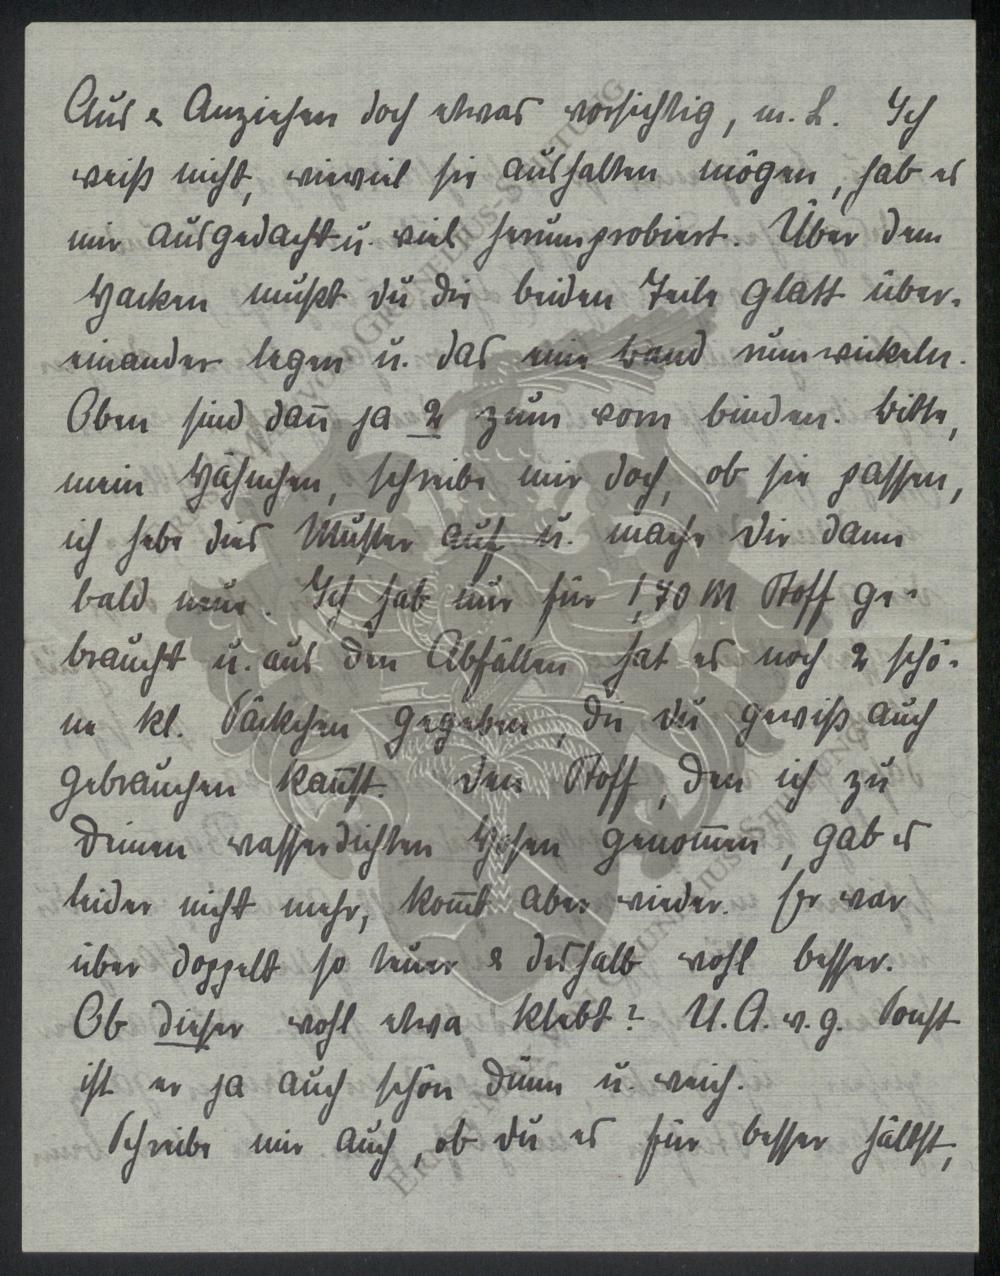 Aus & Anziehen doch etwas vorsichtig, m. L. Ich
weiß nicht, wieviel sie aushalten mögen, hab es
mir ausgedacht u. viel herumprobiert. Über dem
Hacken mußt du die beiden Teile glatt über-
einander legen u. das eine Band rumwickeln.
Oben sind dan̄ ja 2 zum vorn binden. Bitte,
mein Hähnchen, schreibe mir doch, ob sie passen,
ich hebe dies Muster auf u. mache dir dann
bald neue. Ich hab nur für 1,70 M Stoff ge-
braucht u. aus den Abfällen hat es noch 2 schö-
ne kl. Säckchen gegeben, die du gewiß auch
gebrauchen kan̄st. Den Stoff, den ich zu
Deinen wasserdichten Hosen genom̄en, gab es
leider nicht mehr, kom̄t aber wieder. Er war
über doppelt so teuer & deshalb wohl besser.
Ob dieser wohl etwa klebt? U. A. w. g. Sonst
ist er ja auch schön dünn u. weich.
Schreibe mir auch, ob du es für besser hältst,